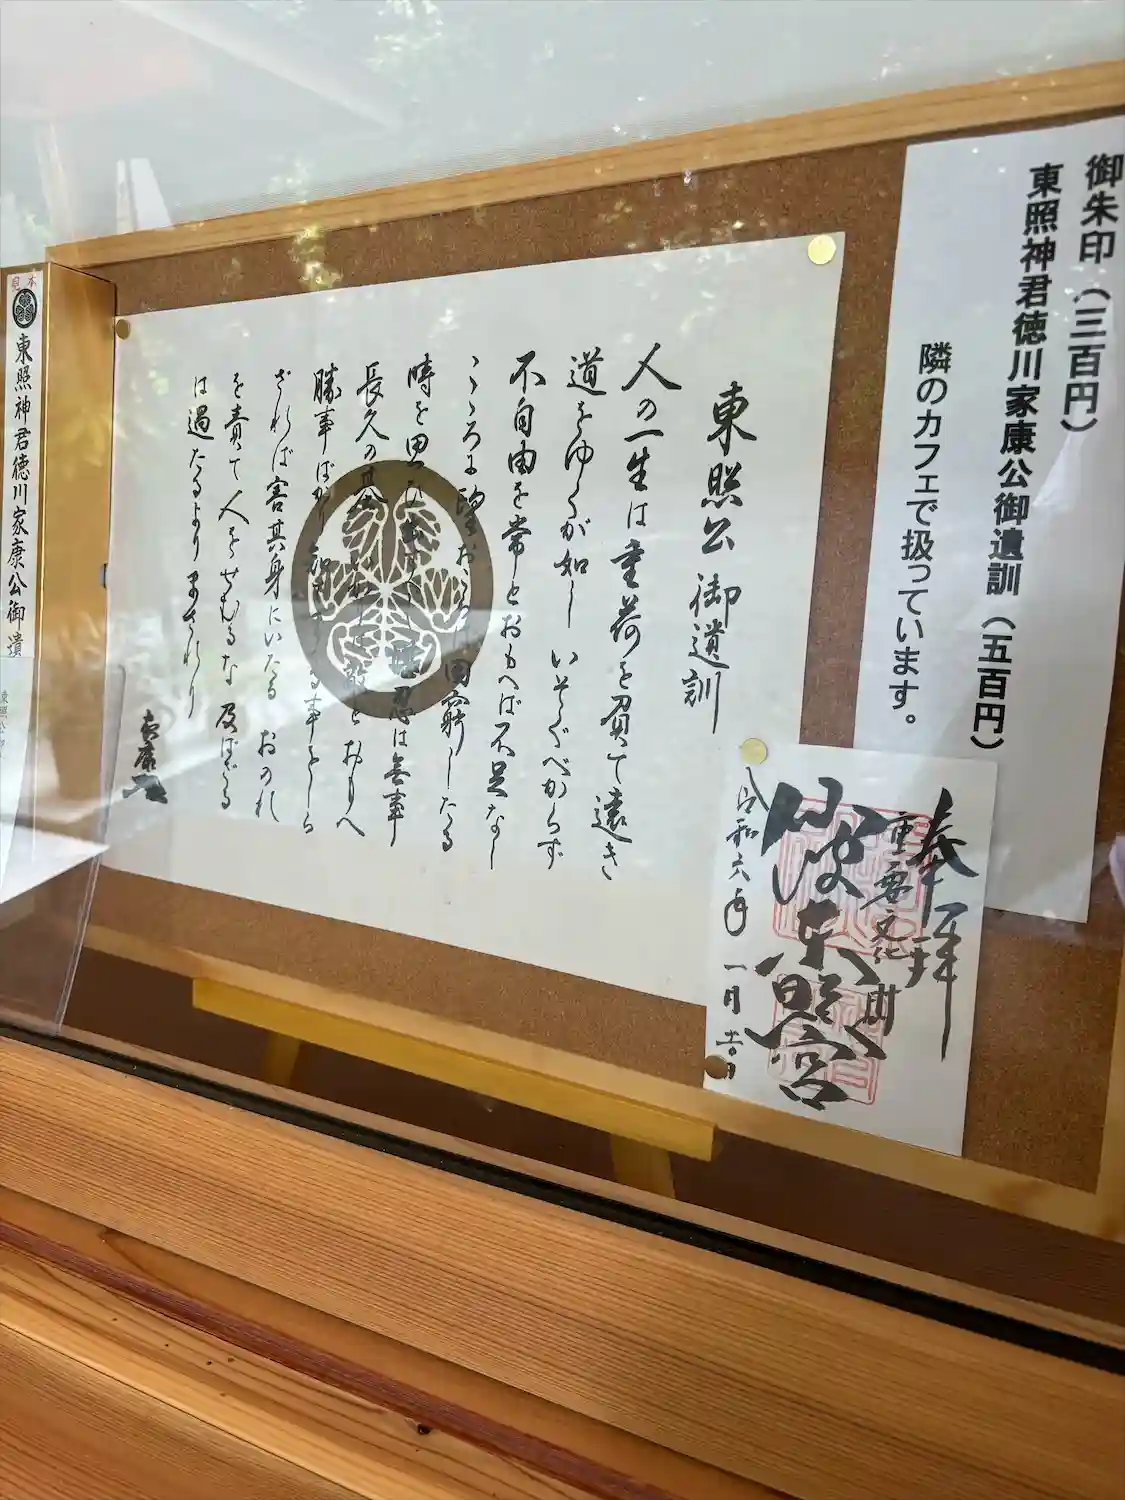 御朱印（三百円）
東照神君徳川家康公御遺訓（五百円）
隣のカフェで扱っています。
東照公御遺訓
人の一生は重荷を負て遠き
道をゆくが如し いそぐべからず
不自由を常とおもへば不足なし
こゝろに望おこらば困窮したる
時を思ひ出すべし 堪忍は無事
長久の基 いかりは敵とおもへ
勝事ばかり知てまくる事をしら
ざれば害其身にいたる おのれ
を責て人をせむるな 及ばざる
は過たるよりまされり
家康
奉拝
重要文化財
仙波東照宮
令和六年 一月
見本
東照神君徳川家康公御遺